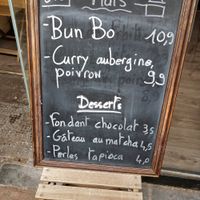 Plats
- Bun Bo 10,9
- Curry aubergine,
poivron 9,9
Desserts
- Fondant chocolat 3,5
- Gâteau au matcha 4,5
- Perles tapioca 4,0